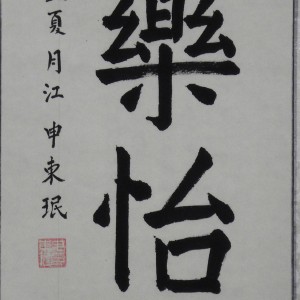 樂怡
夏月江申東珉